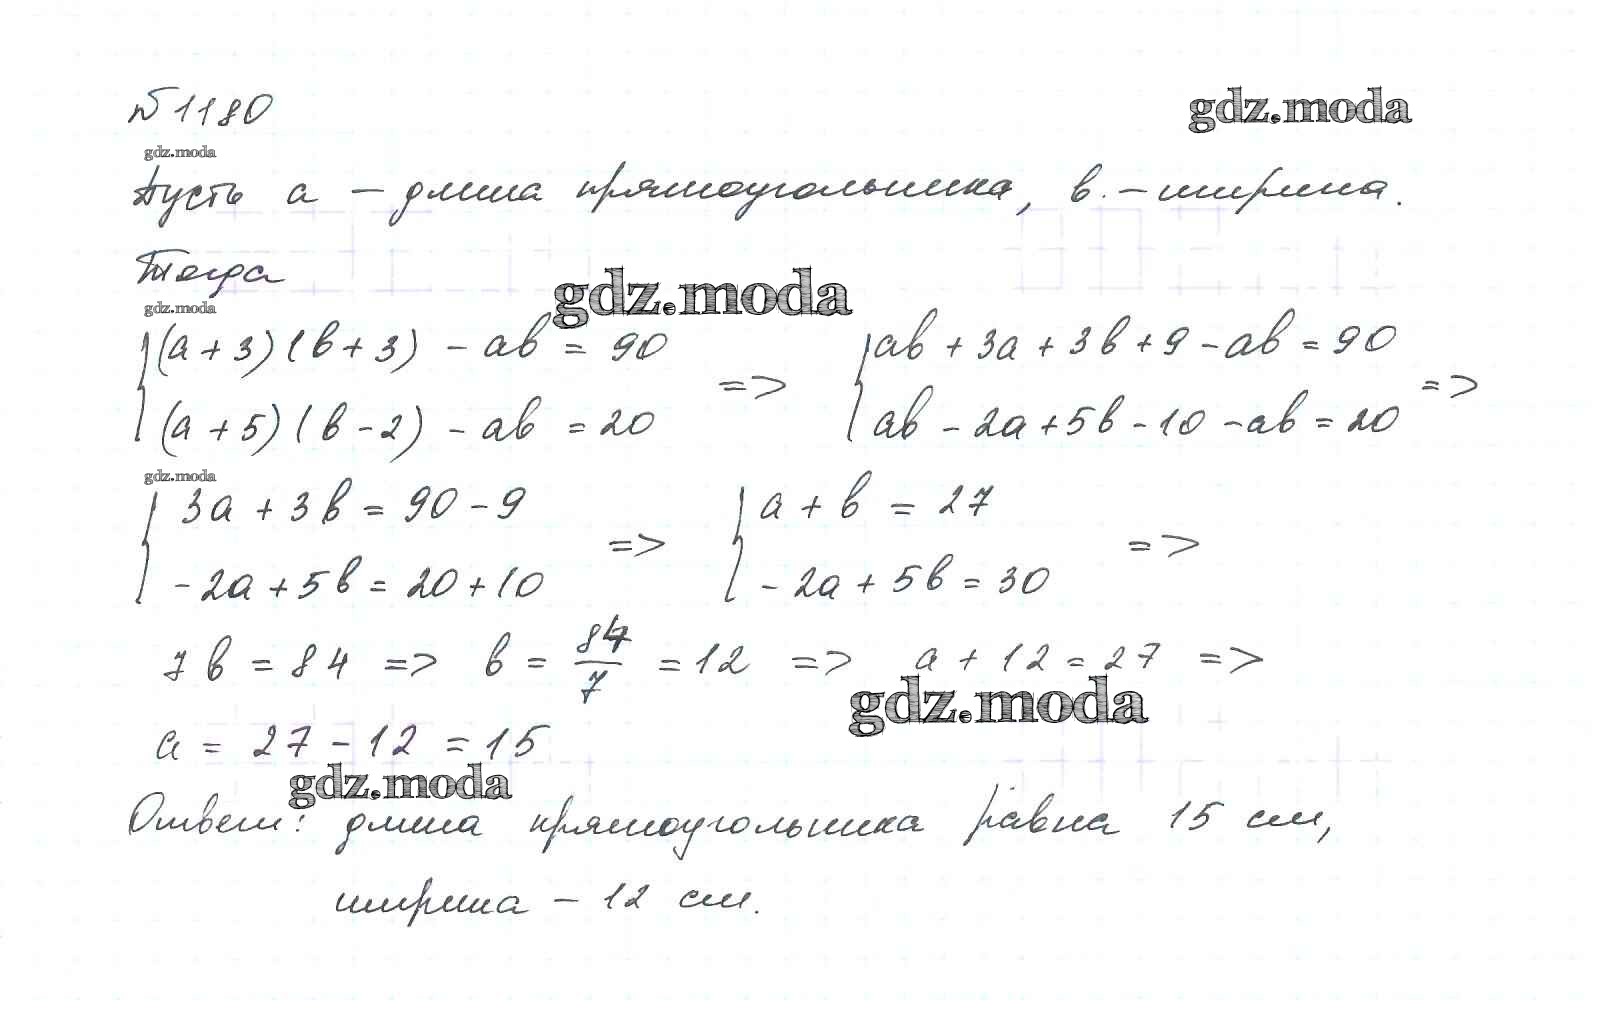 №1180
gdz.moda
gdz.moda
Пусть a – длина прямоугольника, b – ширина.
Тогда
gdz.moda
gdz.moda
(a + 3)(b + 3) - ab = 90 => ab + 3a + 3b + 9 - ab = 90
(a + 5)(b - 2) - ab = 20 ab - 2a + 5b - 10 - ab = 20 =>
gdz.moda
3a + 3b = 90 - 9 => a + b = 27 =>
-2a + 5b = 20 + 10 -2a + 5b = 30
7b = 84 => b = 84/7 = 12 => a + 12 = 27 =>
gdz.moda
a = 27 - 12 = 15
gdz.moda
Ответ: длина прямоугольника равна 15 см,
ширина – 12 см.